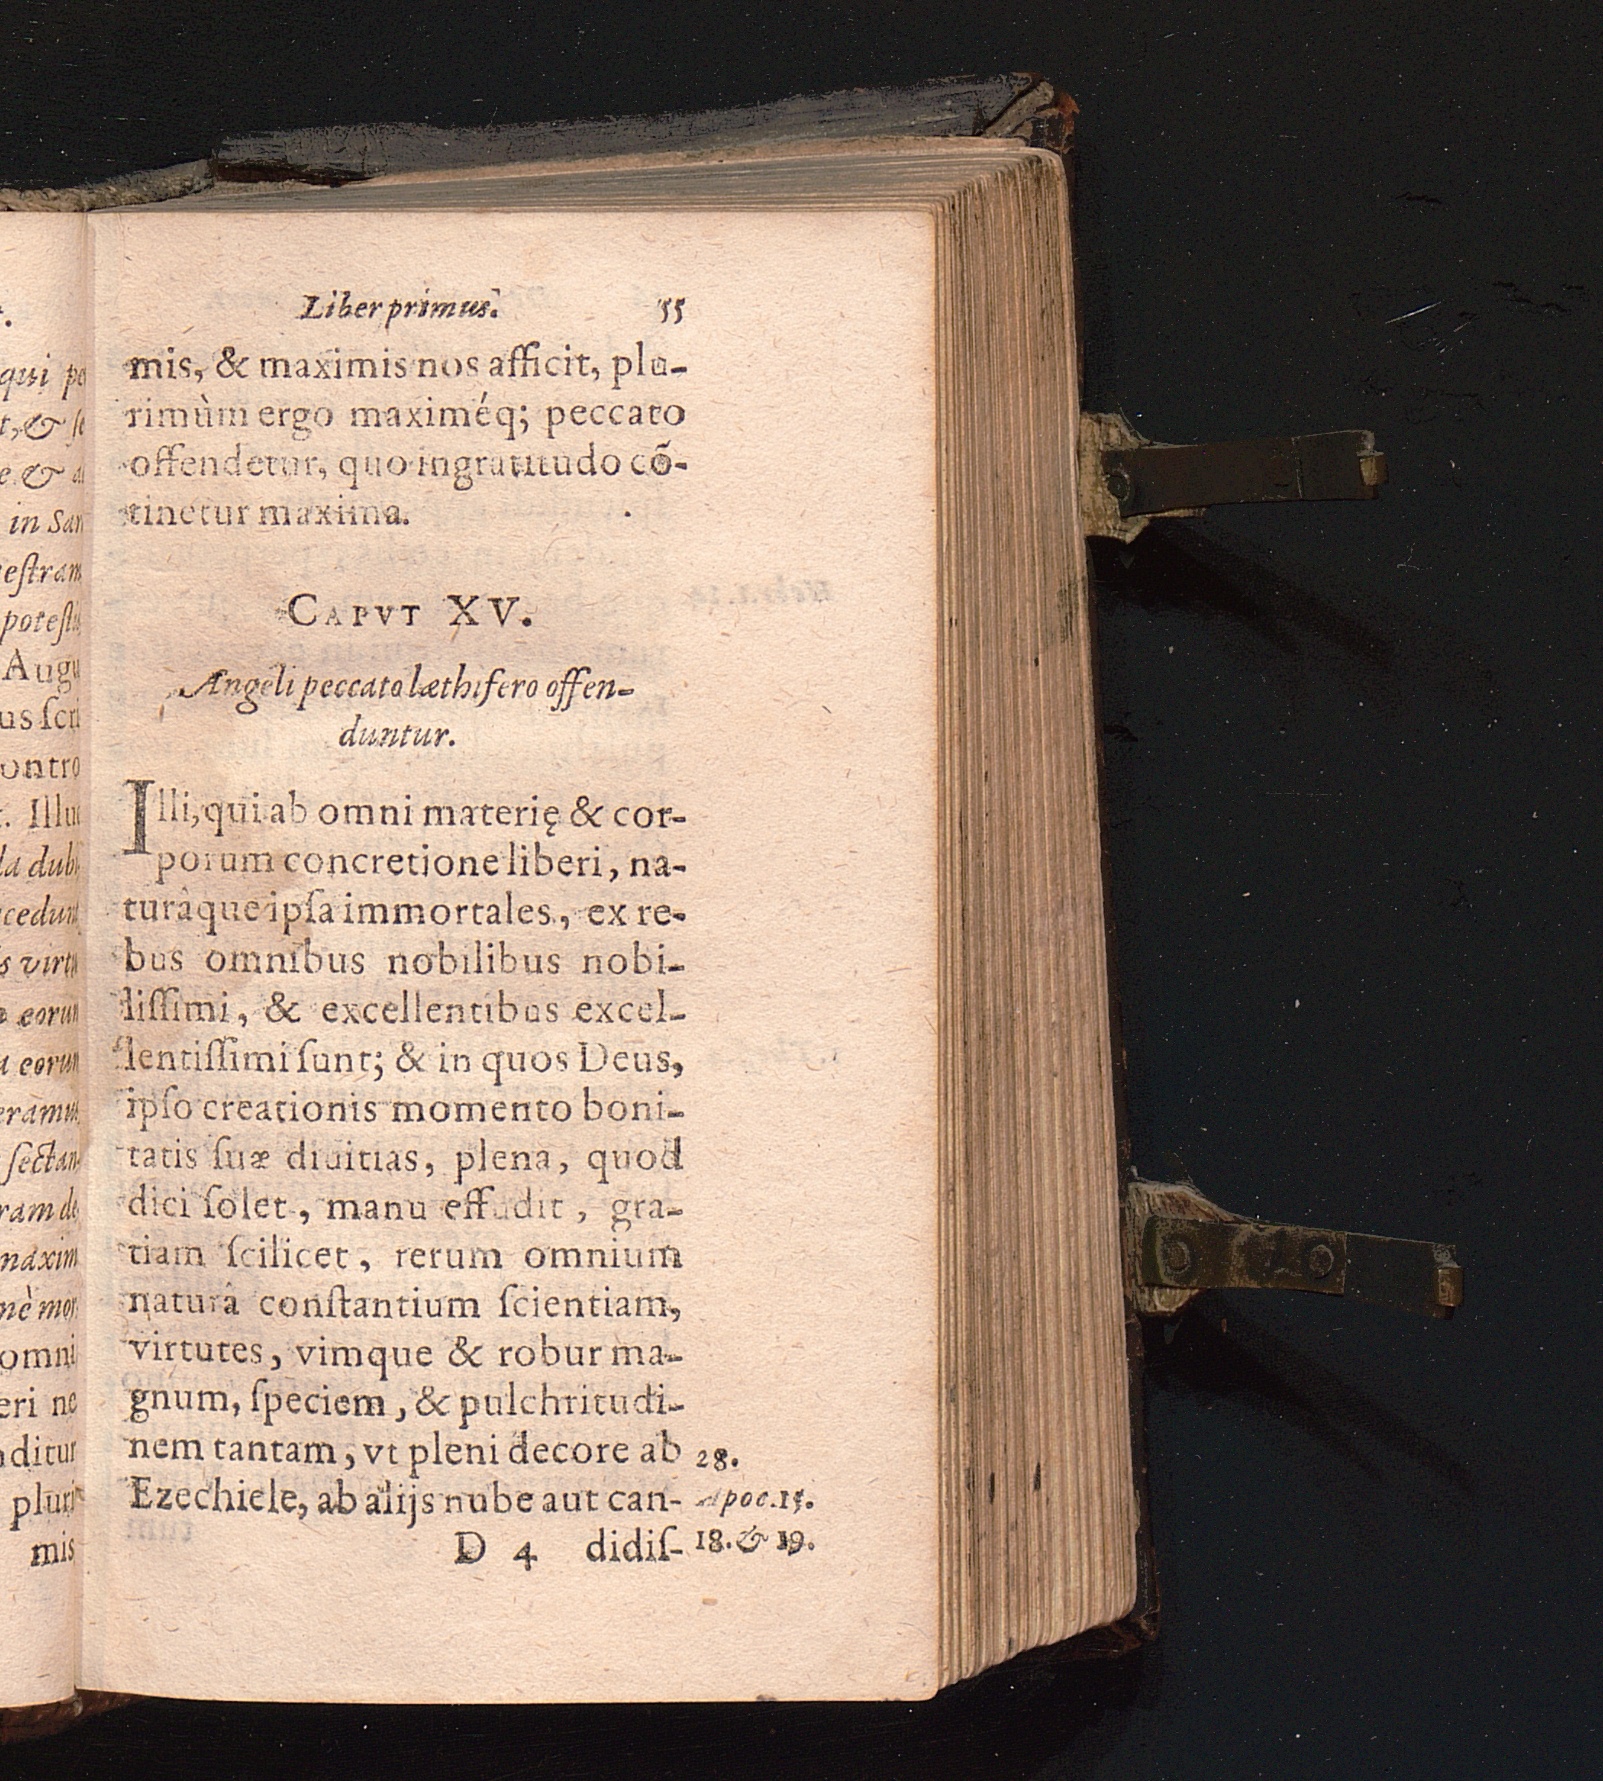 Liber primus. 55
mis, & maximis nos afficit, plu-
rimùm ergo maximéq; peccato
offendetur, quo ingratitudo cõ-
tinetur maxima.
CAPVT XV.
Angeli peccato læthifero offen-
duntur.
Illi, qui ab omni materię & cor-
porum concretione liberi, na-
turâque ipſa immortales, ex re-
bus omnibus nobilibus nobi-
liſſimi, & excellentibus excel-
lentiſſimi ſunt; & in quos Deus,
ipſo creationis momento boni-
tatis ſuæ diuitias, plena, quod
dici ſolet, manu effudit, gra-
tiam ſcilicet, rerum omnium
naturâ conſtantium ſcientiam,
virtutes, vimque & robur ma-
gnum, ſpeciem, & pulchritudi-
nem tantam, vt pleni decore ab
Ezechiele, ab alijs nube aut can-
D 4 didiſ-
28.
Apoc. 15.
18. & 19.
qui
t, &
e &
in
Augu
us ſcri
ontro
omni
eri ne
ditur
pluri
mis